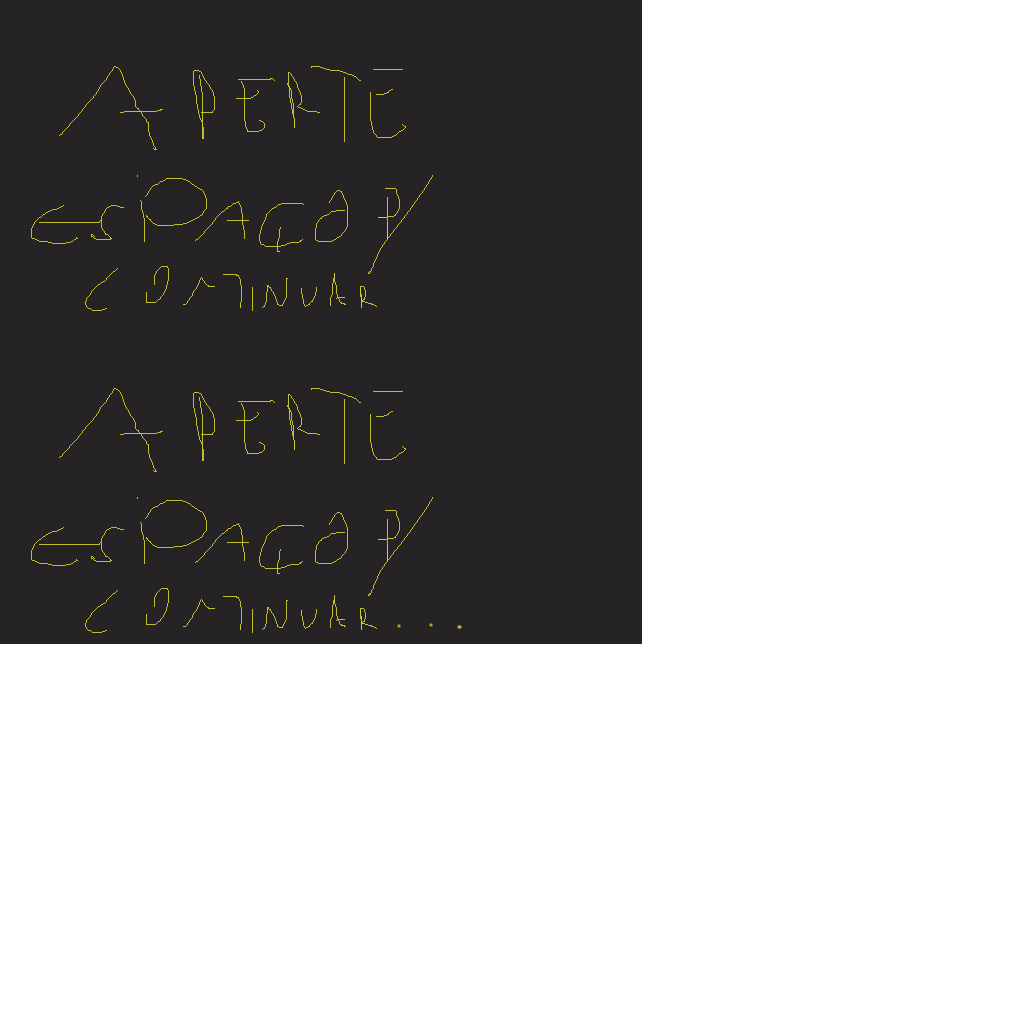 APERTE
ESPAÇO P/
CONTINUAR
APERTE
ESPAÇO P/
CONTINUAR....